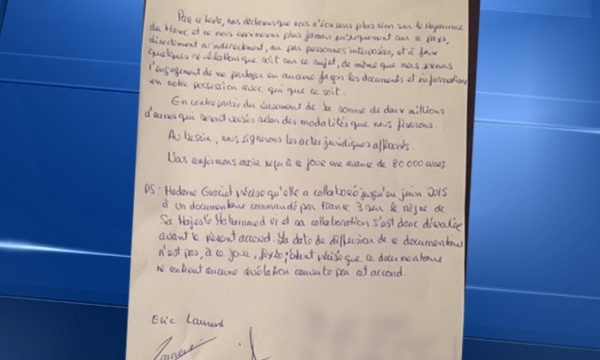 Par ce texte, nous déclarons que nous n'écrirons plus rien sur le Royaume
du Maroc et ne nous exprimerons plus jamais publiquement sur ce pays,
directement ou indirectement, ou par personnes interposées, et à faire
quelque révélation que soit sur ce sujet, de même que nous prenons
l'engagement de ne partager en aucune façon les documents et informations
en notre possession avec qui que ce soit.
En contrepartie du versement de la somme de deux millions
d'euros qui seront versés selon des modalités que nous fixerons.
Au besoin, nous signerons les actes juridiques afférents.
Nous confirmons avoir reçu à ce jour une avance de 80 000 euros
PS: Madame Graciet précise qu'elle a collaboré jusqu'en juin 2015
à un documentaire commandé par France 3 sur le règne de
Sa Majesté Mohammed VI et sa collaboration s'est donc déroulée
avant le présent accord. La date de diffusion de ce documentaire
n'est pas, à ce jour, fixée; étant précisé que ce documentaire
ne contient aucune révélation couverte par cet accord.
Eric Laurent